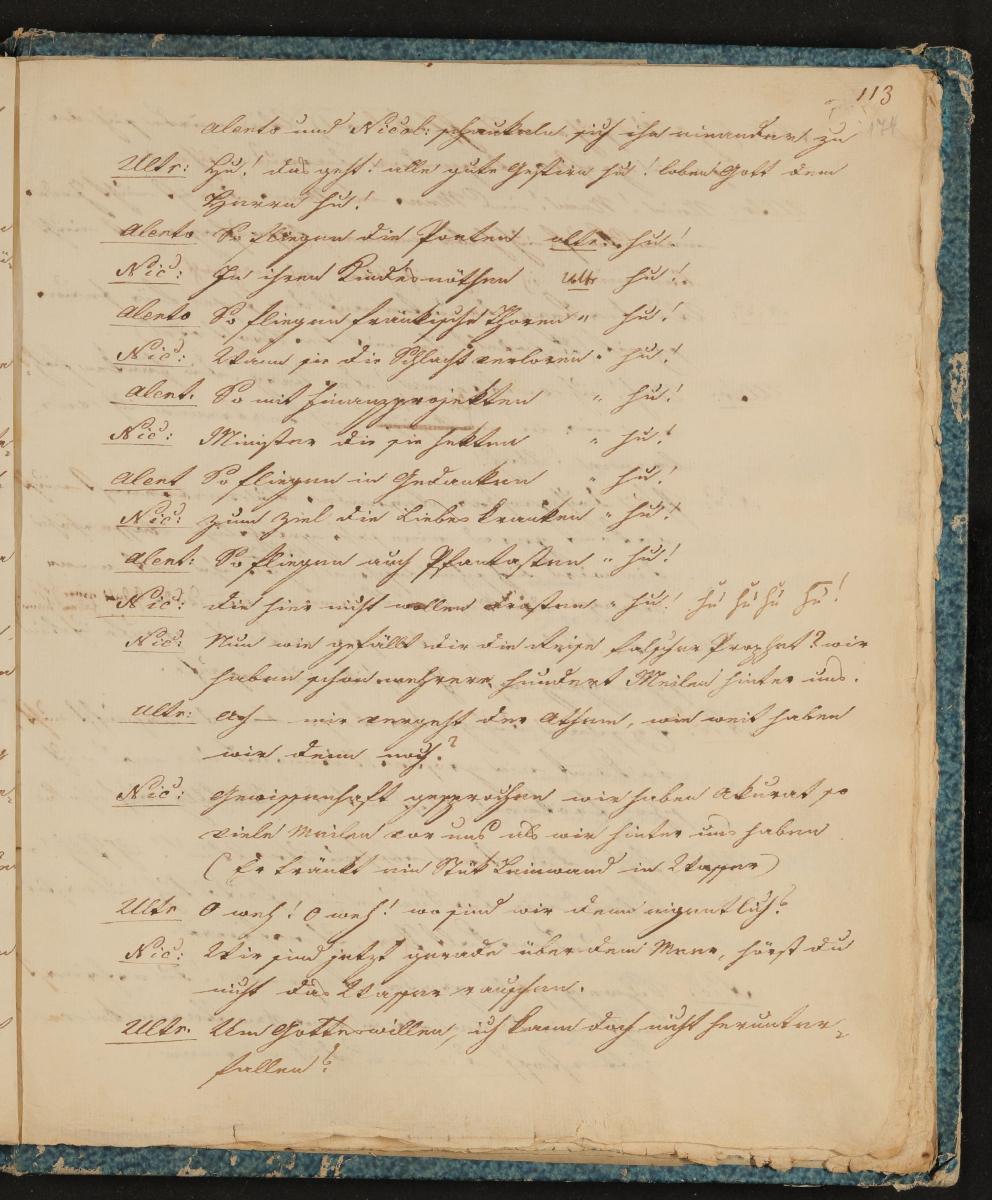 113
174
Alento und Nicob: schaukeln sich ihn einander zu
Ultr: Hu! das geht! alle gute Gestirn hu! loben Gott dem
Herrn hu!
Alento So fliegen die Poeten ultr: hu!
Nic: In ihren Kindesnöthen Ultr hu!
Alento So fliegen fränkische Thoren " hu!
Nic: Wann sie die Schlacht verloren " hu!
Alent. So mit Finanzprojekten " hu!
Nic: Minister die sie hekten " hu!
Alent So fliegen in Gedanken " hu!
Nic: zum Ziel die Liebeskranken " hu!
Alent: So fliegen auch Phantasten " hu!
Nic: die hier nicht wollen " hu! hu hu hu hu!
Nic: Nun wie gefällt dir die Reise falscher Prophet? wir
haben schon mehrere hundert Meilen hinter uns.
Ultr: Ach — mir vergeht der Athem, wie weit haben
wir denn noch?
Nic: Gewissenhaft gesprochen wir haben akurat so
viele Meilen vor uns als wir hinter uns haben
(Er tränkt ein Stük Leinwand in Wasser)
Ultr O weh! O weh! wo sind wir denn eigentlich?
Nic: Wir sind jetzt gerade über dem Meer, hörst du
nicht das Wasser rauschen.
Ultr. Um Gotteswillen, ich kann doch nicht herunter-
fallen?